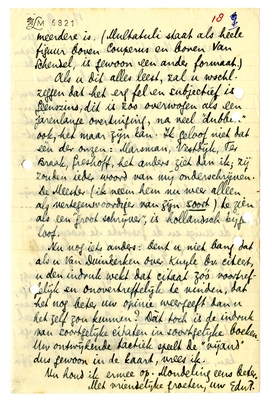 M 6821
18
meerdere is. (Multatuli staat als heele
figuur boven Couperus en boven Van
Schendel, is gewoon een ander formaat.)
Als u dit alles leest, zal u wschl.
zeggen dat het erg fel en subjectief is
Eenszins, dit is zoo overwogen als een
jarenlange overtuiging, na veel "dubben"
ook, het maar zijn kan. Ik geloof niet dat
één der onzen: Marsman, Vestdijk, Ter
Braak, Greshoff, het anders ziet dan ik; zij
zouden ieder woord van mij onderschrijven.
De Meester (ik neem hem nu weer alleen
als vertegenwoordiger van zijn soort) te zien
als een "groot schrijver", is hollandsch bijge-
loof.
Nu nog iets anders: bent u niet bang dat
als u Van Duinkerken over Kuyle bv. citeert,
u den indruk wekt dat citaat zóó voortref-
felijk en onovertreffelijk te vinden, dat
het nog beter uw opinie weergeeft dan u
het zelf zou kunnen? Dát toch is de indruk
van soortgelijke citaten in soortgelijke boeken.
Uw ontwijkende tactiek speelt de "vijand"
dus gewoon in de kaart, vrees ik.
Nu houd ik ermee op. Mondeling eens beter.
Met vriendelijke groeten, uw EduP.